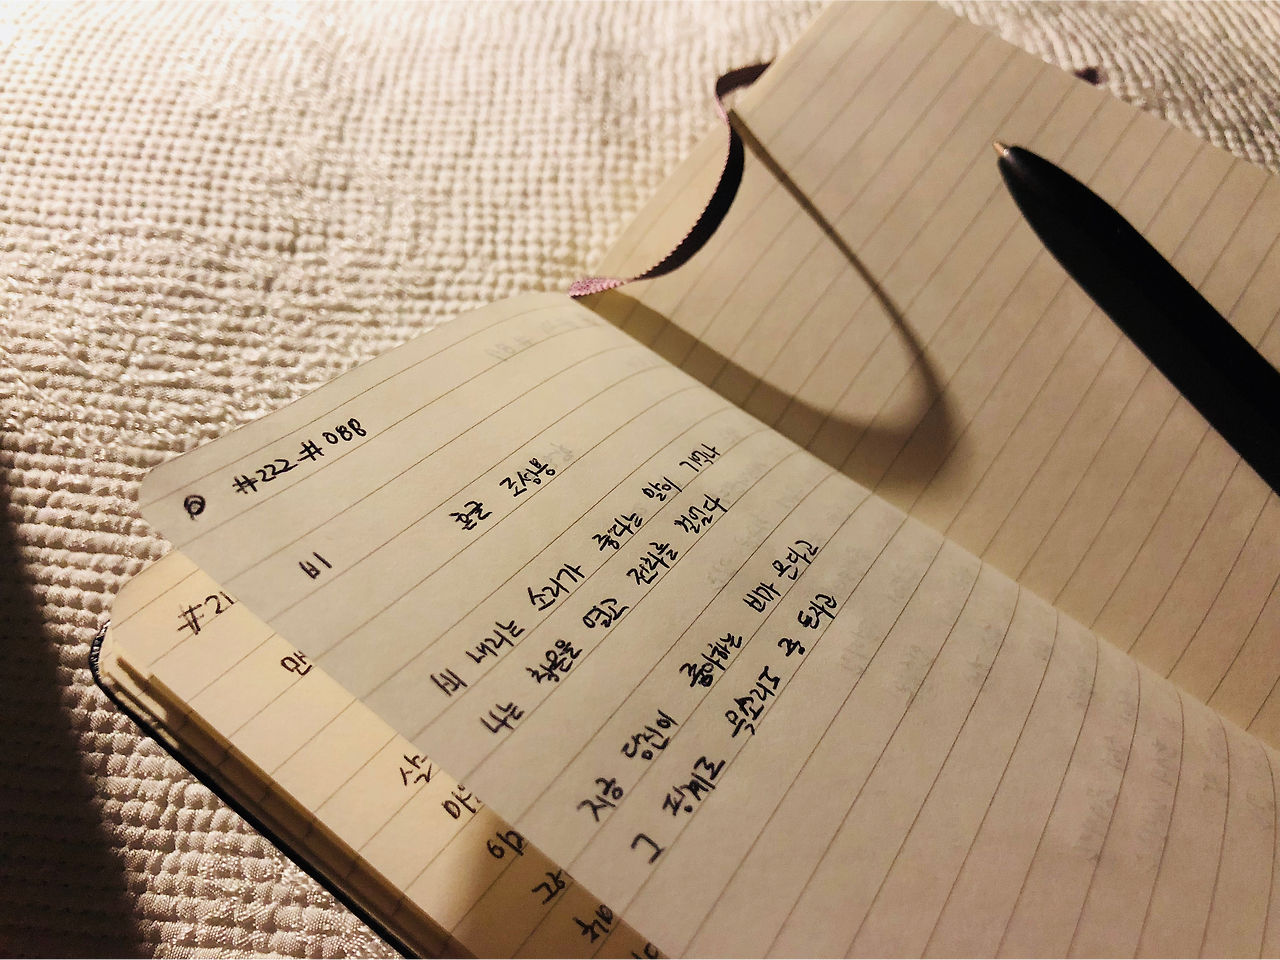 #222 #088
비
혼글 조성용
비 내리는 소리가 좋다는 말이 기억나
나는 창문을 열고 전화를 걸었다
지금 당신이 좋아하는 비가 온다고
그 핑계로 목소리도 좀 듣자고
#21